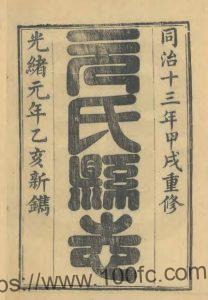 同治十三年甲戌重修
元氏縣志
光緒元年乙亥新鐫
ps://www.100fc.com